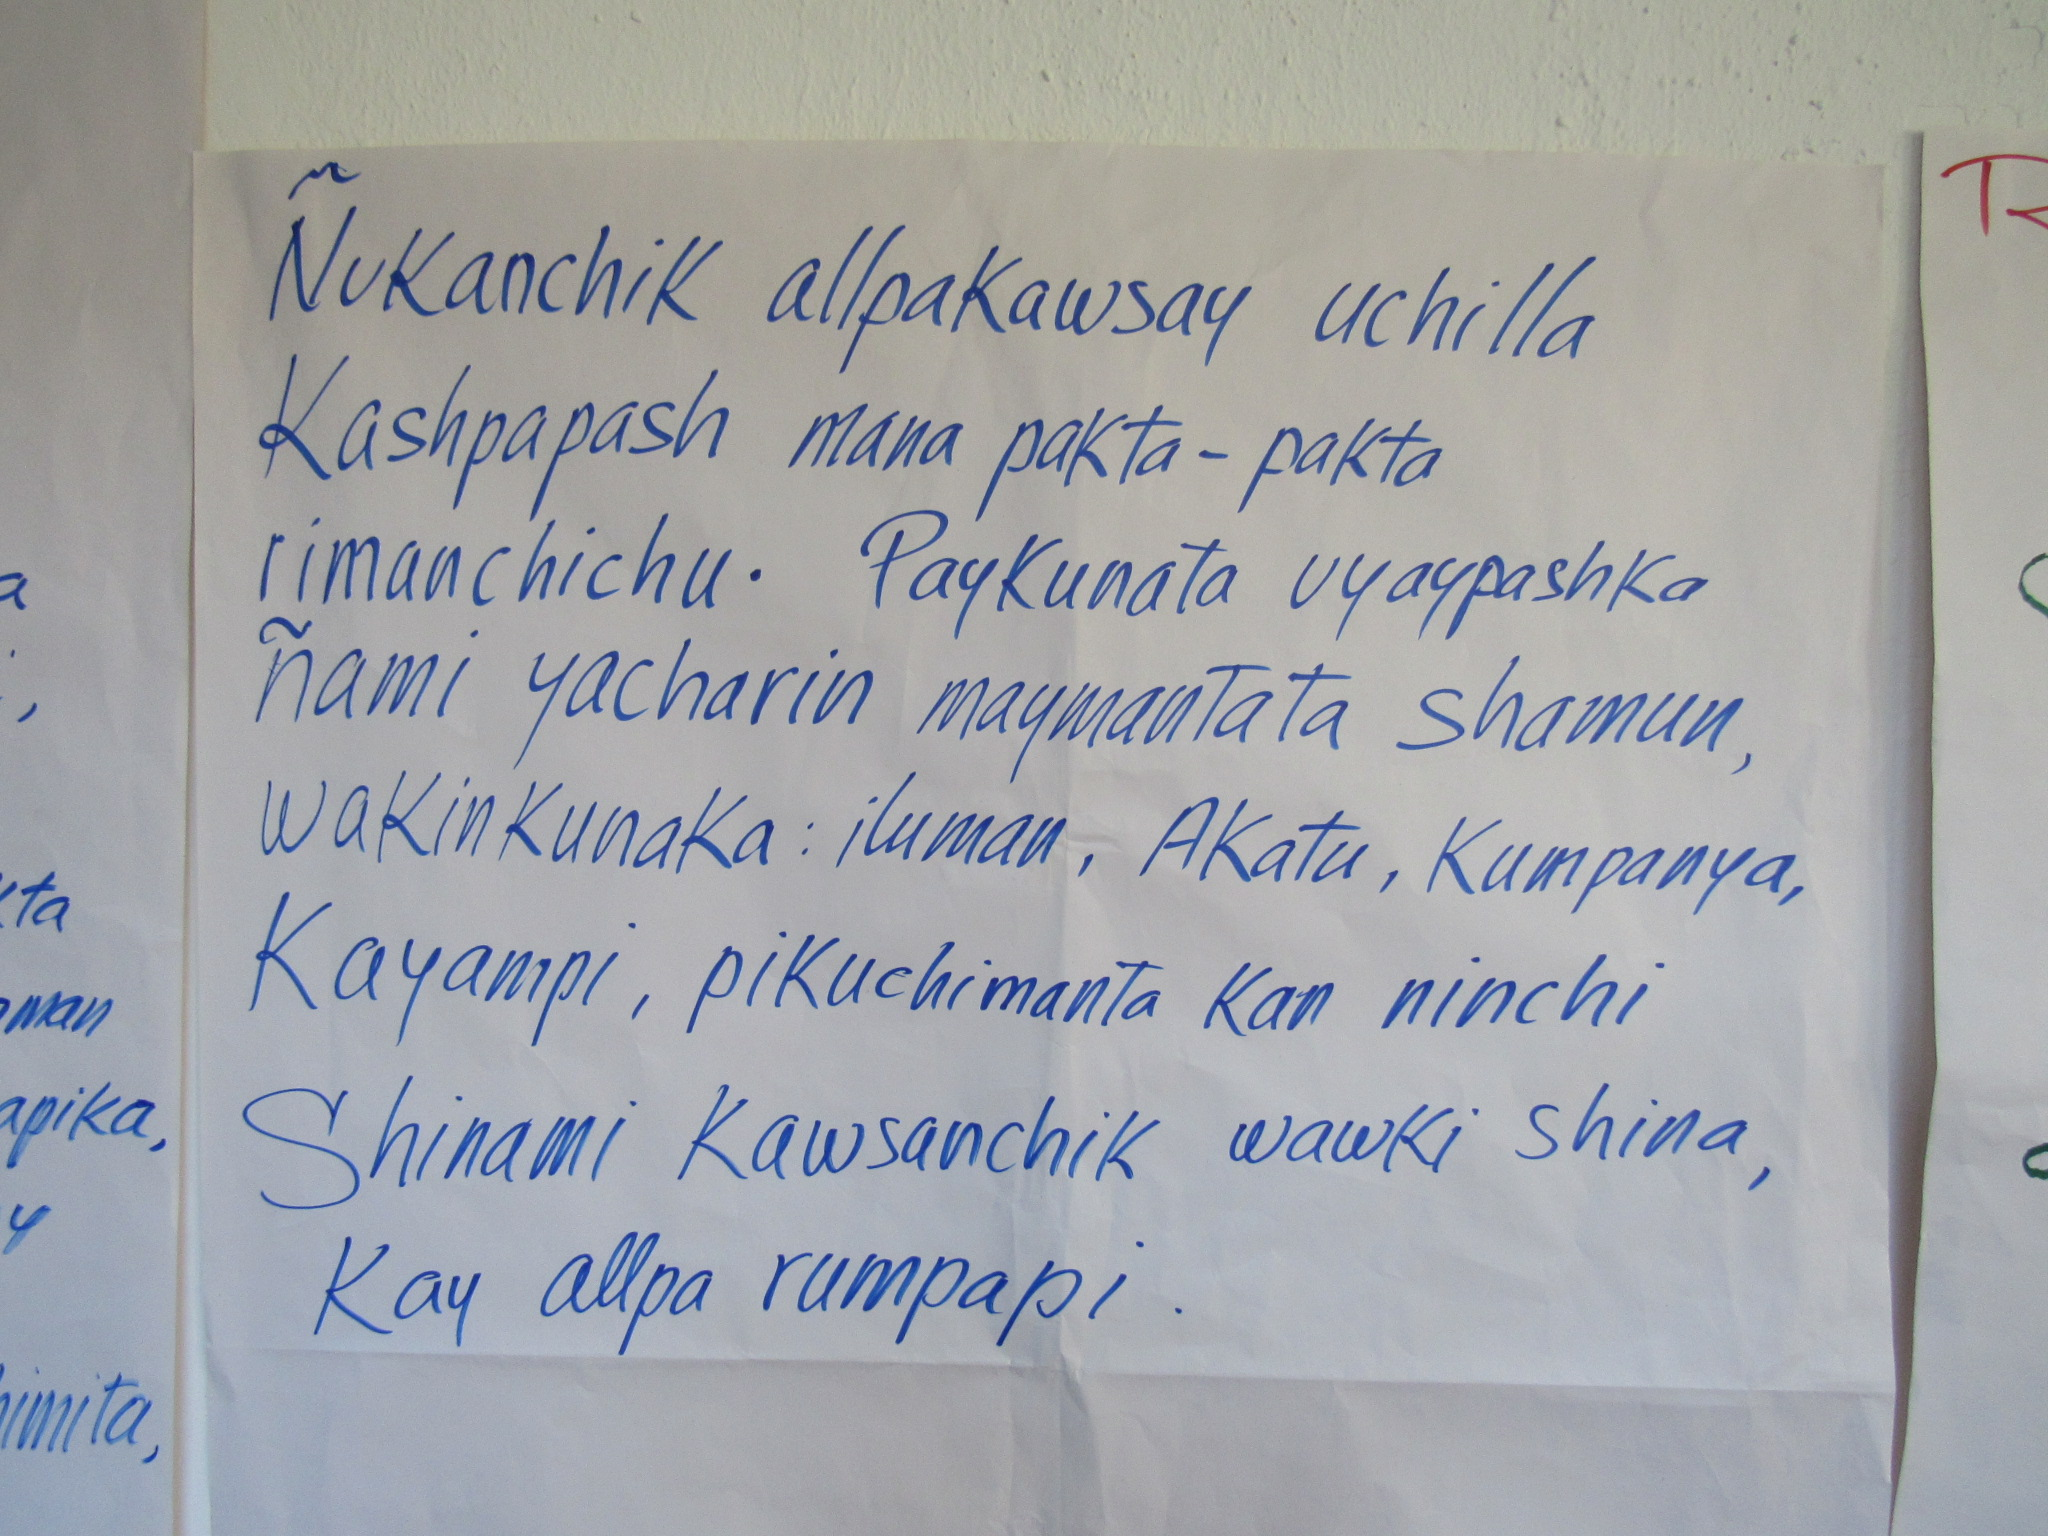 Ñukanchik allpakawsay uchilla
Kashpapash mana pakta-pakta
rimanchichu. Paykunata uyaypashka
ñami yacharin maymantata shamun,
wakinkunaka: iluman, Akatu, Kumpanya,
Kayampi, pikuchimanta kan ninchi
Shinami Kawsanchik wawki shina,
Kay allpa rumpapi.
a
,
kta
man
apika,
y
himita,